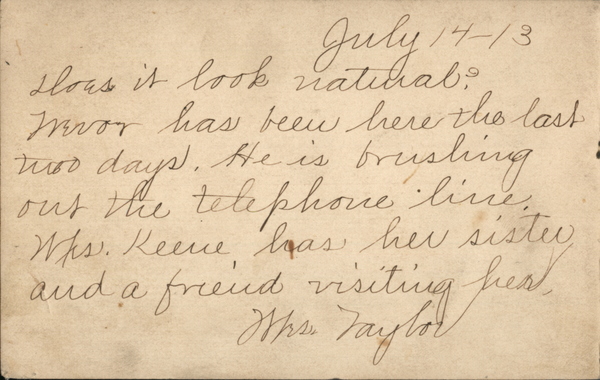 July 14-13
Does it look natural?
Trevor has been here the last
two days. He is brushing
out the telephone line.
Mrs. Keene has her sister
and a friend visiting her.
Mrs. Taylor